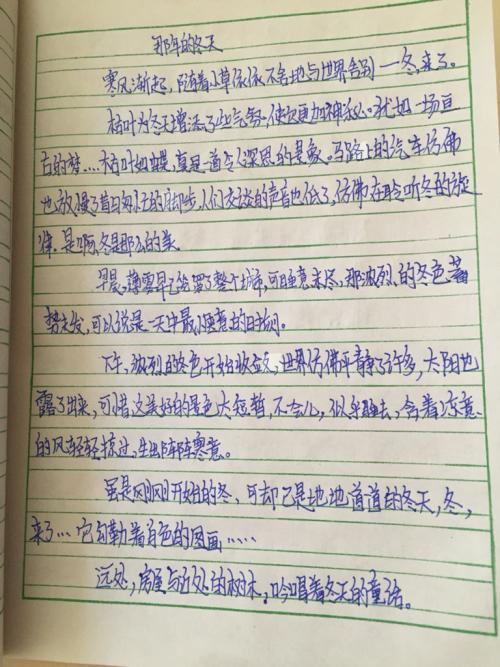 那年的冬天
寒风渐起，随着小草依依不舍地与世界告别一冬，来了。
枯叶为冬天增添了些气氛，使它更加神秘。犹如一场亘
古的梦…，枯叶如蝶，真是一道令人深思的景象。马路上的汽车仿佛
也放慢了昔日匆忙的脚步，人们交谈的声音也低了，仿佛在聆听冬的旋
律，是啊，冬是那么的美
早晨，薄雾早已笼罩了整个城市，可睡意未尽，那浓烈的冬色蓄
势未发，可以说是一天中最惬意的时间。
下午，浓烈的冬色开始收敛，世界仿佛平静了许多，太阳也
露了出来，可惜这美好的景色太短暂，不会儿，似乎睡去，含着凉意
的风轻轻掠过，生出阵阵寒意。
虽是刚刚开始的冬，可却已是地地道道的冬天，冬，
来了…它勾勒着白色的图画……
远处，房屋与近处的树木，吟唱着冬天的童话。